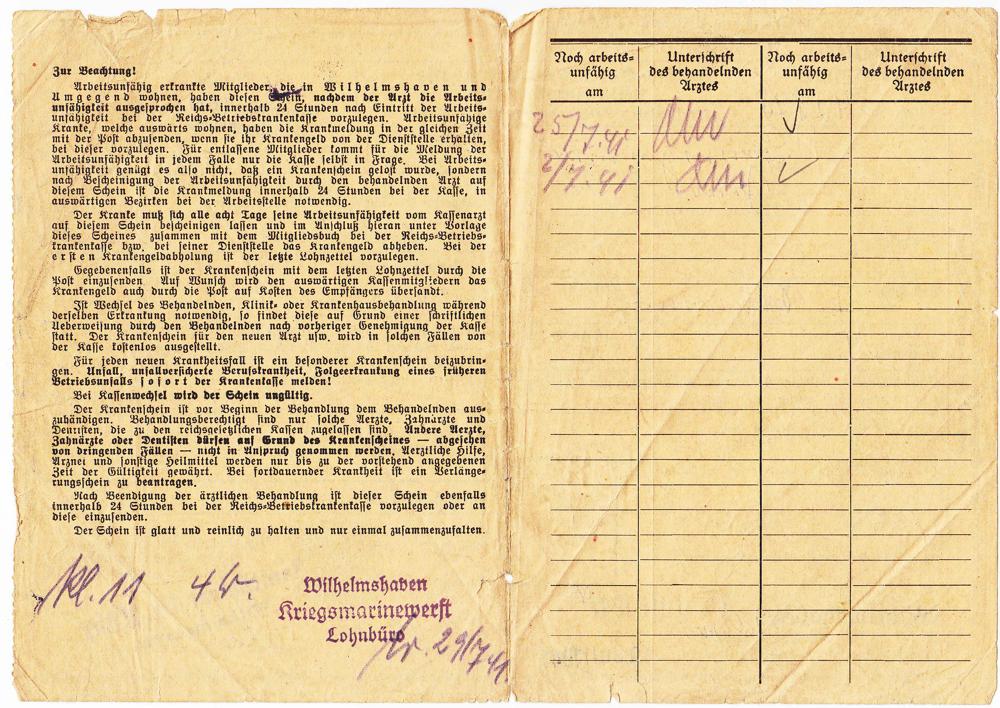 Zur Beachtung!
Arbeitsunfähig erkrankte Mitglieder, die in Wilhelmshaven und
Umgegend wohnen, haben diesen Schein, nachdem der Arzt die Arbeits-
unfähigkeit ausgesprochen hat, innerhalb 24 Stunden nach Eintritt der Arbeits-
unfähigkeit bei der Reichs-Betriebskrankenkasse vorzulegen. Arbeitsunfähige
Kranke, welche auswärts wohnen, haben die Krankmeldung in der gleichen Zeit
mit der Post abzusenden, wenn sie ihr Krankengeld von der Dienststelle erhalten,
bei dieser vorzulegen. Für entlassene Mitglieder kommt für die Meldung der
Arbeitsunfähigkeit in jedem Falle nur die Kasse selbst in Frage. Bei Arbeits-
unfähigkeit genügt es also nicht, daß ein Krankenschein gelöst wurde, sondern
nach Bescheinigung der Arbeitsunfähigkeit durch den behandelnden Arzt auf
diesem Schein ist die Krankmeldung innerhalb 24 Stunden bei der Kasse, in
auswärtigen Bezirken bei der Arbeitsstelle notwendig.
Der Kranke muß sich alle acht Tage seine Arbeitsunfähigkeit vom Kassenarzt
auf diesem Schein bescheinigen lassen und im Anschluß hieran unter Vorlage
dieses Scheines zusammen mit dem Mitgliedsbuch bei der Reichs-Betriebs-
krankenkasse bzw. bei seiner Dienststelle das Krankengeld abheben. Bei der
ersten Krankengeldabholung ist der letzte Lohnzettel vorzulegen.
Gegebenenfalls ist der Krankenschein mit dem letzten Lohnzettel durch die
Post einzusenden. Auf Wunsch wird den auswärtigen Kassenmitgliedern das
Krankengeld auch durch die Post auf Kosten des Empfängers übersandt.
Ist Wechsel des Behandelnden, Klinik- oder Krankenhausbehandlung während
derselben Erkrankung notwendig, so findet diese auf Grund einer schriftlichen
Ueberweisung durch den Behandelnden nach vorheriger Genehmigung der Kasse
statt. Der Krankenschein für den neuen Arzt usw. wird in solchen Fällen von
der Kasse kostenlos ausgestellt.
Für jeden neuen Krankheitsfall ist ein besonderer Krankenschein beizubrin-
gen. Unfall, unfallversicherte Berufskrankheit, Folgeerkrankung eines früheren
Betriebsunfalls sofort der Krankenkasse melden!
Bei Kassenwechsel wird der Schein ungültig.
Der Krankenschein ist vor Beginn der Behandlung dem Behandelnden aus-
zuhändigen. Behandlungsberechtigt sind nur solche Aerzte, Zahnärzte und
Dentisten, die zu den reichsgesetzlichen Kassen zugelassen sind. Andere Aerzte,
Zahnärzte oder Dentisten dürfen auf Grund des Krankenscheines — abgesehen
von dringenden Fällen — nicht in Anspruch genommen werden. Aerztliche Hilfe,
Arznei und sonstige Heilmittel werden nur bis zu der vorstehend angegebenen
Zeit der Gültigkeit gewährt. Bei fortdauernder Krankheit ist ein Verlänge-
rungsschein zu beantragen.
Nach Beendigung der ärztlichen Behandlung ist dieser Schein ebenfalls
innerhalb 24 Stunden bei der Reichs-Betriebskrankenkasse vorzulegen oder an
diese einzusenden.
Der Schein ist glatt und reinlich zu halten und nur einmal zusammenzufalten.
Kl. 11
Wilhelmshaven
Kriegsmarinewerft
Lohnbüro
29/7 41.
Noch arbeits- Unterschrift Noch arbeits- Unterschrift
unfähig des behandelnden unfähig des behandelnden
am Arztes am Arztes
25/7.41
2/7.41